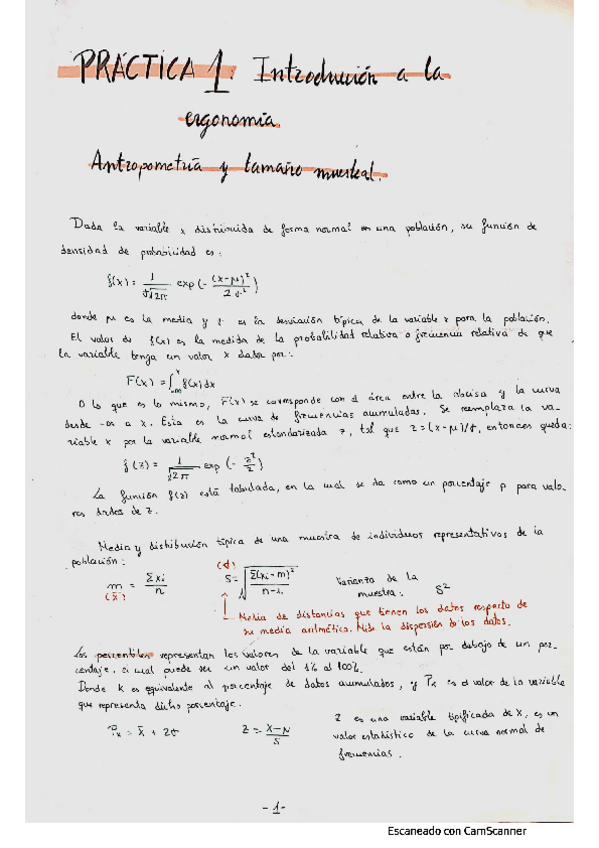 PRÁCTICA 1: Introducción a la
ergonomía.
Antropometría y tamaño muestral.
Dada la variable x distribuida de forma normal en una población, su función de
densidad de probabilidad es:
f(x) = 1/(σ√2π) exp(-(x-μ)²/2σ²)
donde μ es la media y σ es la desviación típica de la variable x para la población.
El valor de f(x) es la medida de la probabilidad relativa o frecuencia relativa de que
la variable tenga un valor x dado por:
F(x) = ∫ f(x)dx
O lo que es lo mismo, F(x) se corresponde con el área entre la abcisa y la curva
desde -∞ a x. Esta es la curva de frecuencias acumuladas. Se reemplaza la va-
riable x por la variable normal estandarizada z, tal que z=(x-μ)/σ, entonces queda:
f(z) = 1/√2π exp(-z²/2)
La función f(z) está tabulada, en la cual se da como un porcentaje p para valo-
res dados de z.
Media y distribución típica de una muestra de individuos representativos de la
población:
(d)
m = Σxi/n S = √Σ(xi-m)²/n-1 Varianza de la
(x̄) muestra: S²
Media de distancias que tienen los datos respecto de
su media aritmética. Mide la dispersión de los datos.
Los percentiles representan los valores de la variable que están por debajo de un por-
centaje, el cual puede ser un valor del 1% al 100%.
Donde K es equivalente al porcentaje de datos acumulados, y Pk es el valor de la variable
que representa dicho porcentaje.
Pk = x̄ + Zσ Z = x-μ/S Z es una variable tipificada de X, es un
valor estadístico de la curva normal de
frecuencias.
-1-
Escaneado con CamScanner